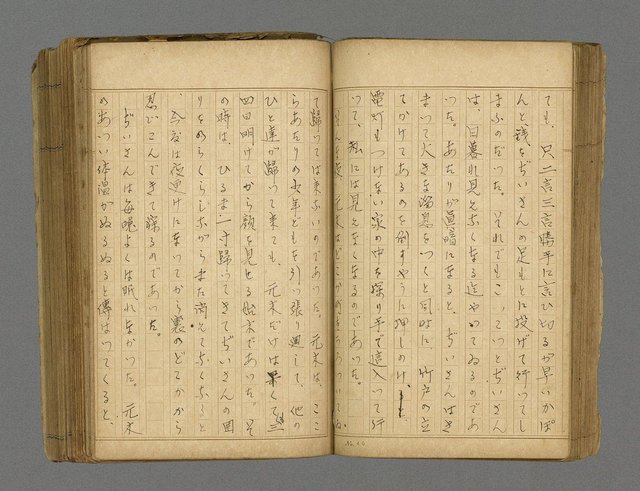 ても、只二言三言勝手に言ひ切るが早いかぽ
んと銭をぢいさんの足もとに投げて行つてし
まふのだつた。それでもこつてつとぢいさん
は、日暮れ見えなくなる迄やつてゐるのであ
つた。あたりが真暗になると、ぢいさんはき
まつて大きな溜息をつくと同時に、竹戸の立
てかけてあるのを倒すやうに押しのけ、
電灯もつけない家の中を探り手で這入つて行
つて、私には見えなくなるのであつた。
て歸つては来ないのであつた。元木は、ここ
らあたりの少年どもを引つ張り廻して、他の
ひと達が歸つて来ても、元木だけは早くて三
四日明けてから顔を見せる始末であつた。そ
の時は、ひるま一寸歸つてきてぢいさんの囲
りをのらくらしながら又消えてなくなると
、今度は夜更けになつてから裏のどてから
忍びこんできて寝るのであつた。
ぢいさんは毎晩よくは眠れなかつた。元木
のあつい体温がぬるぬると傳はつてくると、
No. 40